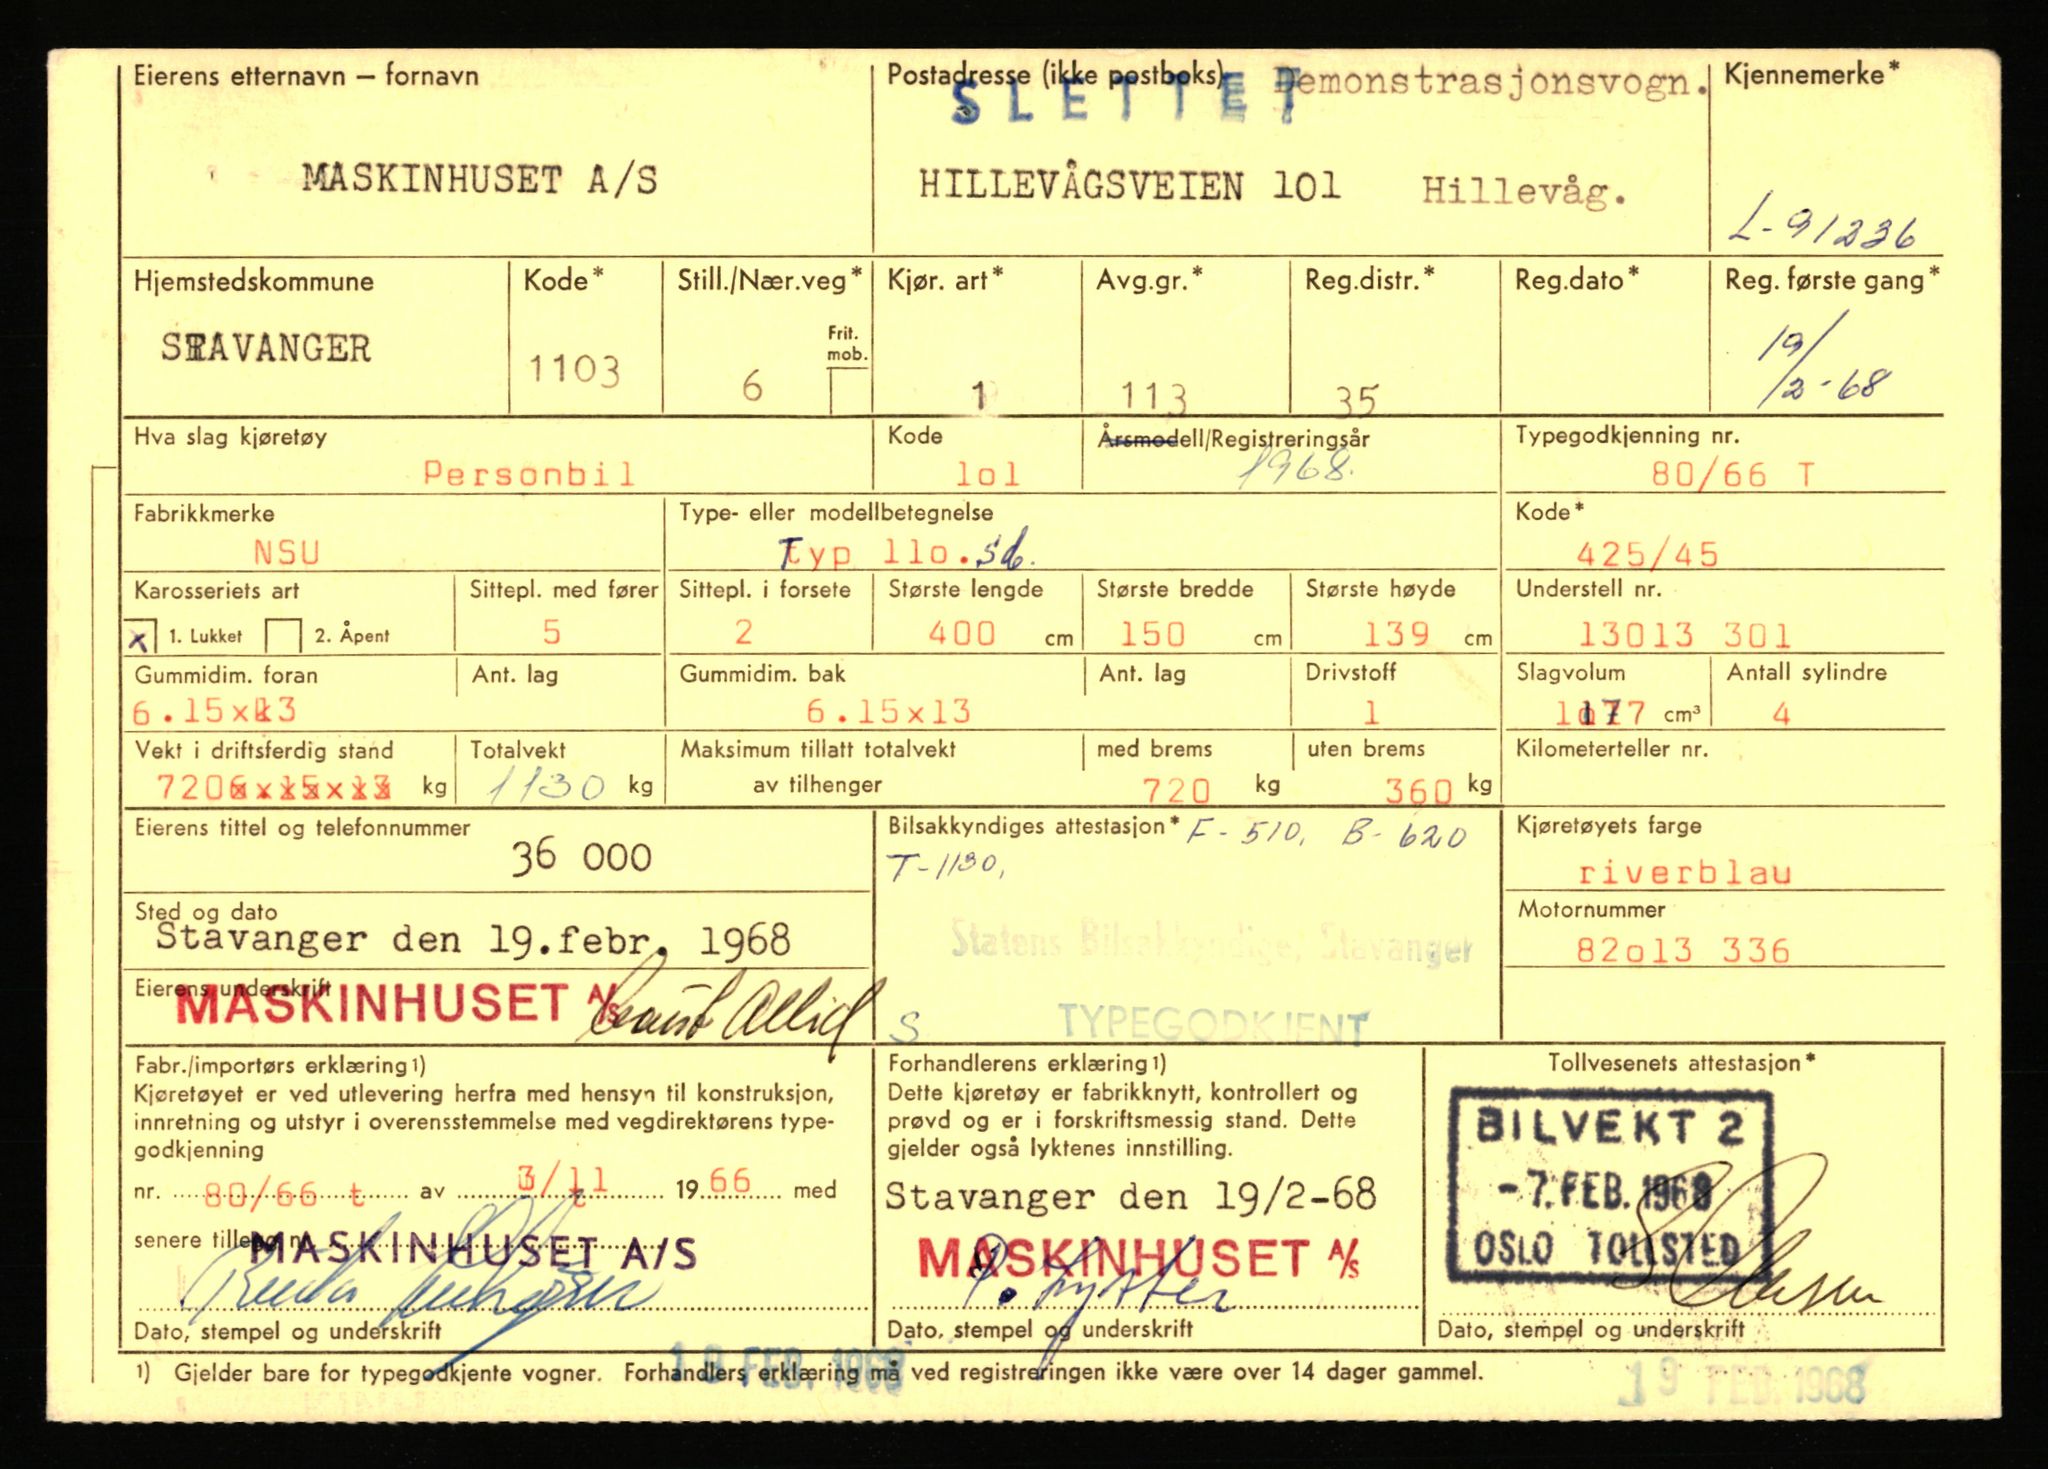 Eierens etternavn – fornavn
MASKINHUSET A/S
Postadresse (ikke postboks)
SLETTET
Demonstrasjonsvogn.
HILLEVÅGSVEIEN 101 Hillevåg.
Kjennemerke*
L-91236
Hjemstedskommune
STAVANGER
Kode*
1103
Still./Nær.veg*
Frit. mob.
6
Kjør. art*
1
Avg.gr.*
113
Reg.distr.*
35
Reg.dato*
Reg. første gang*
19/2-68
Hva slag kjøretøy
Personbil
Kode
lol
Årsmodell/Registreringsår
1968.
Typegodkjenning nr.
80/66 T
Fabrikkmerke
NSU
Type- eller modellbetegnelse
Typ llo.Sd.
Kode*
425/45
Karosseriets art
x 1. Lukket 2. Åpent
Sittepl. med fører
5
Sittepl. i forsete
2
Største lengde
400 cm
Største bredde
150 cm
Største høyde
139 cm
Understell nr.
13013 301
Gummidim. foran
6.15x13
Ant. lag
Gummidim. bak
6.15x13
Ant. lag
Drivstoff
1
Slagvolum
1177 cm³
Antall sylindre
4
Vekt i driftsferdig stand
720 kg
Totalvekt
1130 kg
Maksimum tillatt totalvekt
av tilhenger
med brems
720 kg
uten brems
360 kg
Kilometerteller nr.
Eierens tittel og telefonnummer
36 000
Bilsakkyndiges attestasjon* F-510, B-620
T-1130,
Statens Bilsakkyndige, Stavanger
S TYPEGODKJENT
Kjøretøyets farge
riverblau
Motornummer
82o13 336
Sted og dato
Stavanger den 19.febr. 1968
Eierens underskrift
MASKINHUSET A/S
Fabr./importørs erklæring 1)
Kjøretøyet er ved utlevering herfra med hensyn til konstruksjon,
innretning og utstyr i overensstemmelse med vegdirektørens type-
godkjenning
nr. 80/66 t av 3/11 1966 med
senere tillegg nr.
MASKINHUSET A/S
Dato, stempel og underskrift
Forhandlerens erklæring 1)
Dette kjøretøy er fabrikknytt, kontrollert og
prøvd og er i forskriftsmessig stand. Dette
gjelder også lyktenes innstilling.
Stavanger den 19/2-68
MASKINHUSET A/S
Dato, stempel og underskrift
Tollvesenets attestasjon*
BILVEKT 2
-7. FEB. 1968
OSLO TOLLSTED
Dato, stempel og underskrift
1) Gjelder bare for typegodkjente vogner. Forhandlers erklæring må ved registreringen ikke være over 14 dager gammel.
19 FEB. 1968
19 FEB. 1968